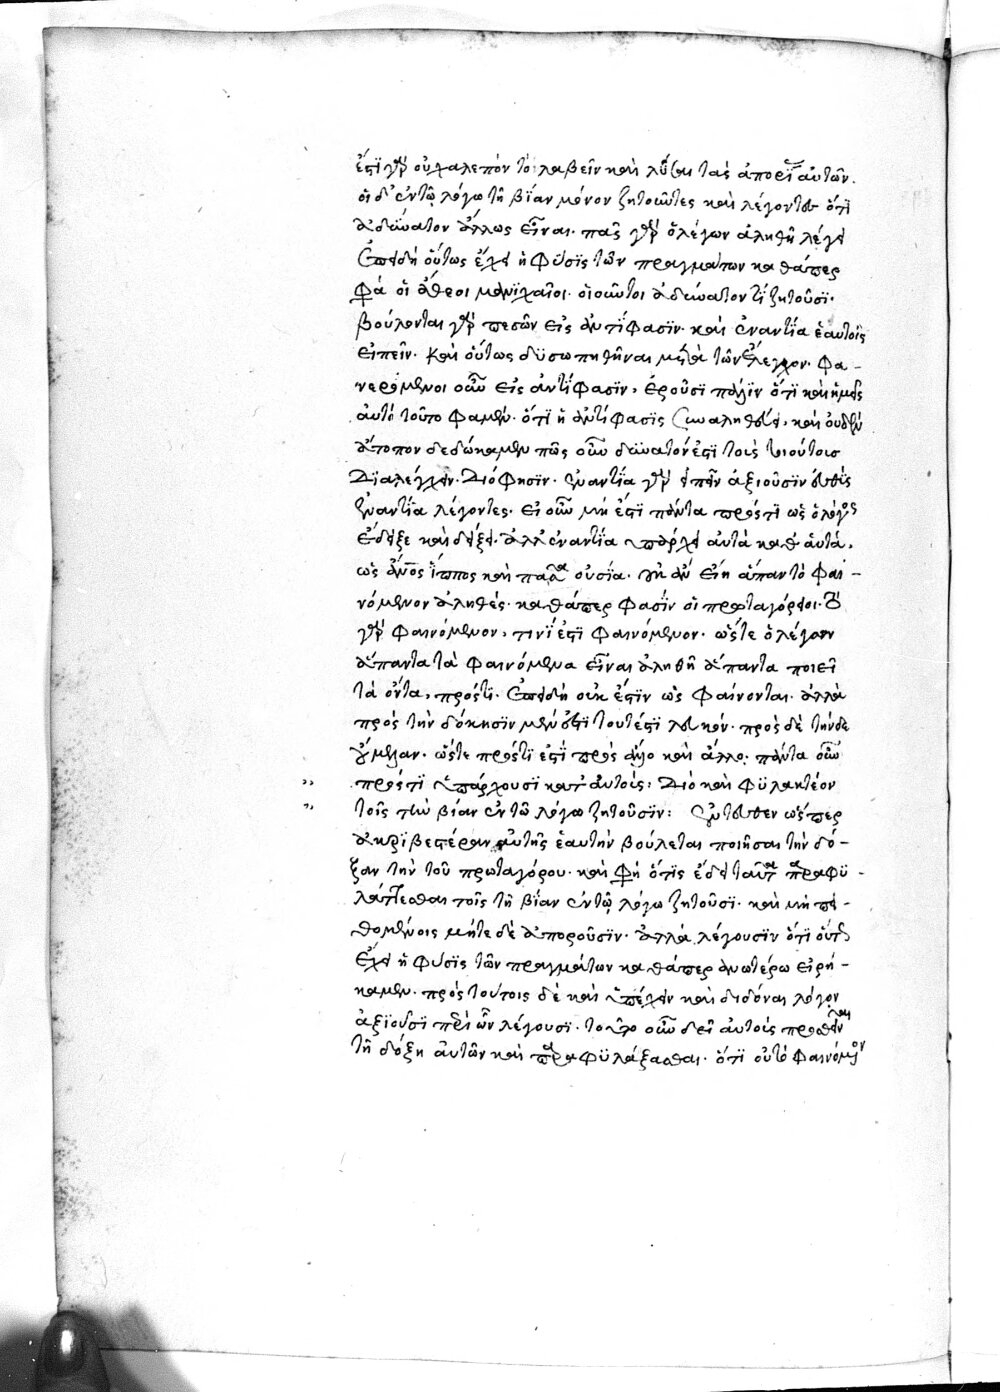 ἔστι γὰρ οὐ χαλεπὸν τὸ λαβεῖν καὶ λῦσαι τὰς ἀπορίας αὐτῶν.
οἱ δ' ἐν τῷ λόγω τὴν βίαν μόνον ζητοῦντες καὶ λέγοντες ὅτι
ἀδύνατον ἄλλως εἶναι. πᾶς γὰρ ὁ λέγων ἀληθῆ λέγει
ἐπειδὴ οὕτως ἔχει ἡ φύσις τῶν πραγμάτων καθάπερ
φασὶ οἱ ἄθεοι μανιχαῖοι. οἱ οὗτοι ἀδύνατόν τι ζητοῦσι.
βούλονται γὰρ πεσεῖν εἰς ἀντίφασιν. καὶ ἐναντία ἑαυτοῖς
εἰπεῖν. καὶ οὕτως δυσωπηθῆναι μετὰ τὸν ἔλεγχον. φα-
νερούμενοι οὖν εἰς ἀντίφασιν, ἐροῦσι πάλιν ὅτι καὶ ἡμεῖς
αὐτὸ τοῦτο φαμὲν. ὅτι ἡ ἀντίφασις συναληθεύει, καὶ οὐδὲν
ἄτοπον δεδώκαμεν πῶς οὖν δυνατόν ἐστι τοῖς τοιούτοις
διαλέγεσθαι. διό φησιν. ἐναντία γὰρ εἰπεῖν ἀξιοῦσιν εὐθὺς
ἐναντία λέγοντες. εἰ οὖν μή ἐστι πάντα πρός τι ὡς ὁ λόγος
ἔδειξε καὶ δείξει. ἀλλ' ἐναντία ὑπάρχει αὐτὰ καθ' αὑτά,
ὡς ἄνος ἵππος καὶ πᾶσα οὐσία. οὐκ ἂν εἴη ἅπαν τὸ φαι-
νόμενον ἀληθές. καθάπερ φασὶν οἱ πρωταγόρειοι. τὸ
γὰρ φαινόμενον, τινί ἐστι φαινόμενον. ὥστε ὁ λέγων
ἅπαντα τὰ φαινόμενα εἶναι ἀληθῆ ἅπαντα ποιεῖ
τὰ ὄντα, πρός τι. ἐπειδὴ οὐκ ἔστιν ὡς φαίνονται. ἀλλὰ
πρὸς τὴν δόκησιν μὲν ὅτι τουτέστι λευκόν. πρὸς δὲ τήνδε
μέλαν. ὥστε πρός τι ἐστὶ πρὸς ἄλλο καὶ ἄλλο. πάντα οὖν
πρός τι ὑπάρχουσι κατ' αὐτούς, διὸ καὶ φυλακτέον
τοῖς τὴν βίαν ἐν τῶ λόγω ζητοῦσιν: ἐντεῦθεν ὥσπερ
ἀκριβεστέραν αὐτῆς ἑαυτὴν βούλεται ποιῆσαι τὴν δό-
ξαν τὴν τοῦ πρωταγόρου. καὶ φησὶ ὅτις ἔδει ταῦτα παραφυ-
λάττεσθαι τοῖς τὴν βίαν ἐν τῷ λόγω ζητοῦσι. καὶ μὴ πει-
θομένοις μήτε δὲ ἀποροῦσιν. ἀλλὰ λέγουσιν ὅτι οὕτως
ἔχει ἡ φύσις τῶν πραγμάτων καθάπερ ἀνωτέρω εἰρή-
καμεν. πρὸς τούτοις δὲ καὶ ὑπέχειν καὶ διδόναι λόγον
ἀξιοῦσι περὶ ὧν λέγουσι. τοῦτο οὖν δεῖ αὐτοὺς προσθεῖναι
τῆ δόξη αὐτῶν καὶ παραφυλάξασθαι. ὅτι οὐ τὸ φαινόμενον